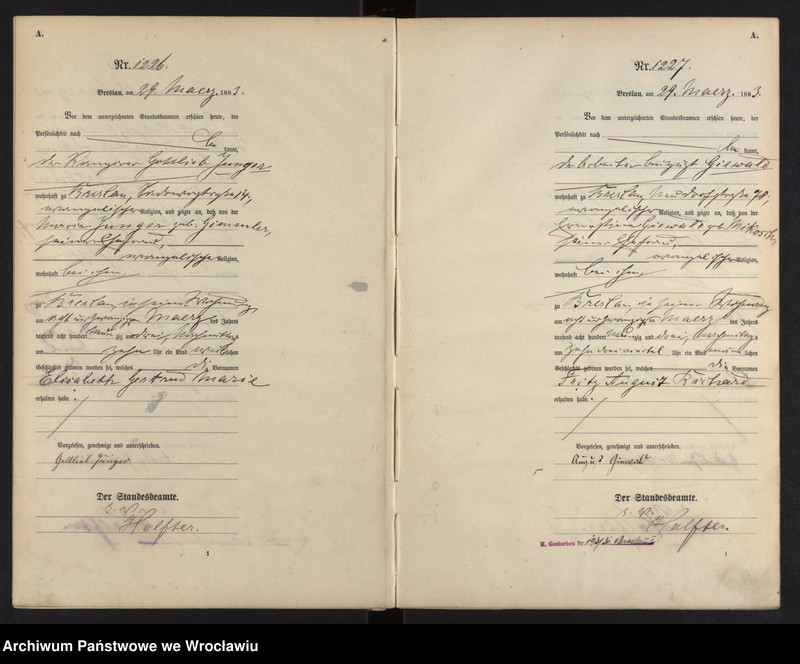 A.
Nr. 1226.
Breslau, am 29. Maerz 1893.
Vor dem unterzeichneten Standesbeamten erschien heute, der
Persönlichkeit nach
kannt,
der Rangirer Gottlieb Junger
wohnhaft zu Breslau,
evangelischer Religion, und zeigte an, daß von der
Maria Junger geb. Gimmler,
seiner Ehefrau,
evangelischer Religion,
wohnhaft bei ihm
zu Breslau in seiner Wohnung
am acht und zwanzigsten Maerz des Jahres
tausend acht hundert neun zig und drei, Nachmittags
um zehn Uhr ein Kind weiblichen
Geschlechts geboren worden sei, welches die Vornamen
Elisabeth Gertrud Marie
erhalten habe.
Vorgelesen, genehmigt und unterschrieben.
Gottlieb Junger
Der Standesbeamte.
Halfter.
1
A.
Nr. 1227.
Breslau, am 29. Maerz 1893.
Vor dem unterzeichneten Standesbeamten erschien heute, der
Persönlichkeit nach
kannt,
der Arbeiter August Giewald
wohnhaft zu Breslau, Neudorfstraße 78,
evangelischer Religion, und zeigte an, daß von der
Ernestine Giewald geb. Mikosch,
seiner Ehefrau,
evangelischer Religion,
wohnhaft bei ihm
zu Breslau in seiner Wohnung
am acht und zwanzigsten Maerz des Jahres
tausend acht hundert neun zig und drei, Nachmittags
um zehn dreiviertel Uhr ein Kind männlichen
Geschlechts geboren worden sei, welches die Vornamen
Fritz August Richard
erhalten habe.
Vorgelesen, genehmigt und unterschrieben.
August Giewald
Der Standesbeamte.
Halfter.
H. Gestorben Nr.
1
Archiwum Państwowe we Wrocławiu